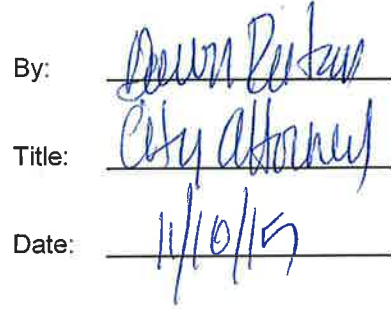 By: Dawn
Title: City Attorney
Date: 11/10/15